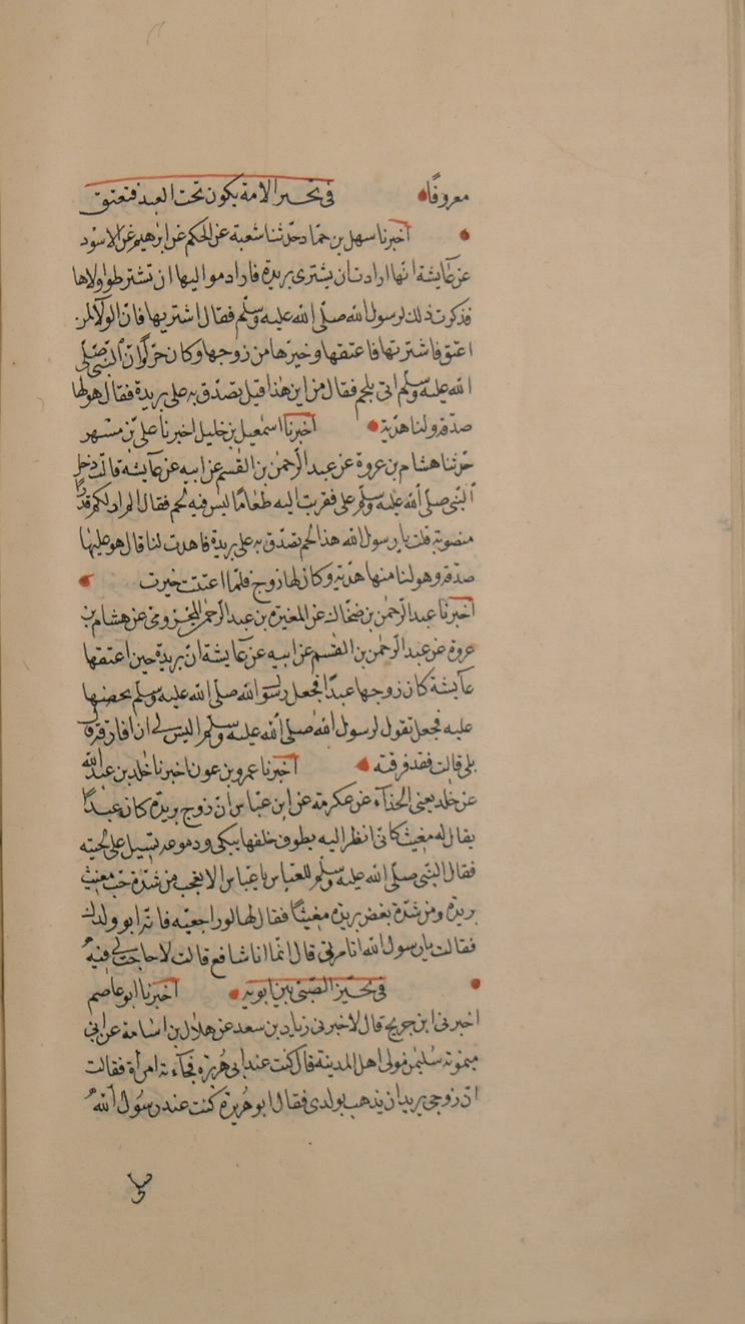 معروفًا في تخيير الامة يكون تحت العبد فتعتق
أخبرنا سهل بن حماد حدثنا شعبة عن الحكم عن ابرهيم عن الاسود
عن عايشة انها ارادت ان يشترى بريدة فاراد مواليها ان تشترطوا ولاها
فذكرت ذلك لرسول الله صلى الله عليه وسلم فقال اشتريها فان الولآ لمن
اعتق فاشترتها فاعتقها وخيرها من زوجها وكان حر وان النبى صلى
الله عليه وسلم اتى بلحم فقال من اين هذا قيل تصدق به على بريدة فقال هو لها
صدقة ولنا هدية أخبرنا اسمعيل بن خليل اخبرنا على بن مسهر
حدثنا هشام بن عروة عن عبد الرحمن بن القسم عن ابيه عن عايشة قالت دخل
النبى صلى الله عليه وسلم على فقربت اليه طعامًا ليس فيه لحم فقال الم ار لكم قدرًا
منصوبة قلت يا رسول الله هذا لحم تصدق به على بريدة فاهدت لنا قال هو عليها
صدقة وهو لنا منها هدية وكان لها زوج فلما اعتقت خيرت
أخبرنا عبد الرحمن بن ضحاك عن المغيرة بن عبد الرحمن المخزومى عن هشام بن
عروة عن عبد الرحمن بن القسم عن ابيه عن عايشة ان بريدة حين اعتقها
عايشة كان زوجها عبدًا فجعل رسول الله صلى الله عليه وسلم يحضها
عليه فجعل تقول لرسول الله صلى الله عليه وسلم اليس لى ان افارقه قال
بلى قالت فقد فرقته أخبرنا عمرو بن عون اخبرنا خلد بن عبد الله
عن خلد يعنى الحذآء عن عكرمة عن ابن عباس ان زوج بريدة كان عبدًا
يقال له مغيث كانى انظر اليه يطوف خلفها يبكى ودموعه تسيل على لحيته
فقال النبى صلى الله عليه وسلم للعباس يا عباس الا تعجب من شدة حب مغيث
بريدة ومن شدة بغض بريدة مغيثًا فقال لها لو راجعتيه فانه ابو ولدك
فقالت يا رسول الله اتامرنى قال انما انا شافع قالت لا حاجة لى فيه
في تخيير الصبى بين ابويه أخبرنا ابو عاصم
اخبرنى ابن جريج قال لاخبرنى زياد بن سعد عن هلال بن اسامة عن ابى
ميمونة سليمن مولى اهل المدينة قال كنت عند ابى هريرة فجآءته امرأة فقالت
ان زوجى يريد ان يذهب بولدى فقال ابو هريرة كنت عند رسول الله